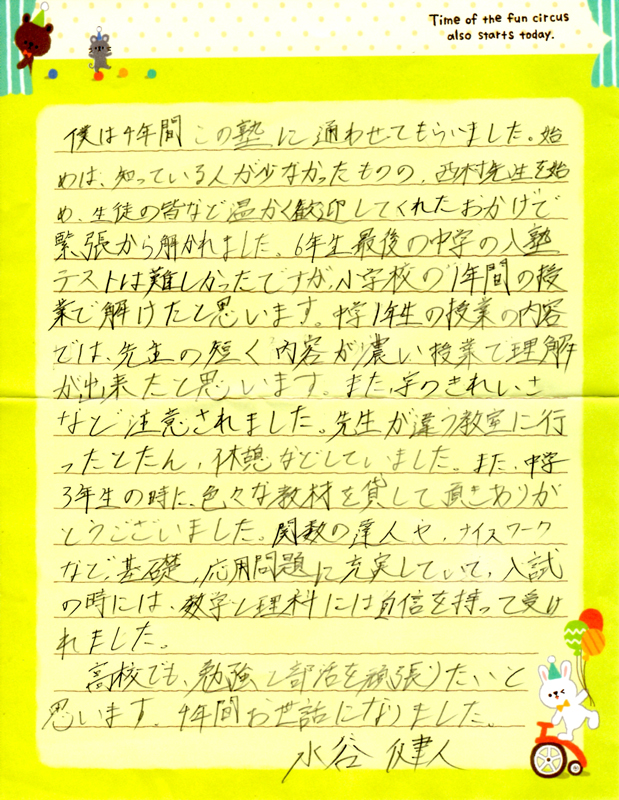 Time of the fun circus
also starts today.
僕は4年間この塾に通わせてもらいました。始
めは、知っている人が少なかったものの、西村先生を始
め、生徒の皆など温かく歓迎してくれたおかげで
緊張から解かれました。6年生最後の中学の入塾
テストは難しかったですが、小学校の1年間の授
業で解けたと思います。中学1年生の授業の内容
では、先生の短く内容が濃い授業で理解
が出来たと思います。また、字のきれいさ
など注意されました。先生が違う教室に行
ったとたん、休憩などしていました。また、中学
3年生の時に、色々な教材を貸して頂きありが
とうございました。関数の達人や、ナイスワーク
など、基礎、応用問題に充実していて、入試
の時には、数学と理科には自信を持って受け
れました。
高校でも、勉強と部活を頑張りたいと
思います。4年間お世話になりました。
水谷 健人